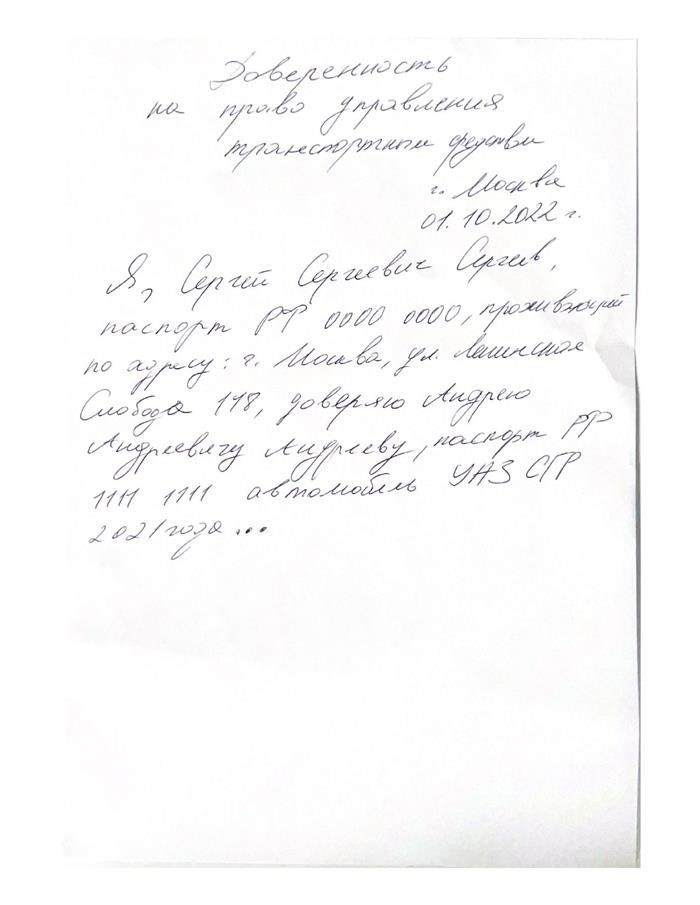 Доверенность
на право управления
транспортным средством
г. Москва
01.10.2022 г.
Я, Сергей Сергеевич Сергеев,
паспорт РФ 0000 0000, проживающий
по адресу: г. Москва, ул. Ленинская
Слобода 118, доверяю Андрею
Андреевичу Андрееву, паспорт РФ
1111 1111 автомобиль УАЗ СГР
2021 года...